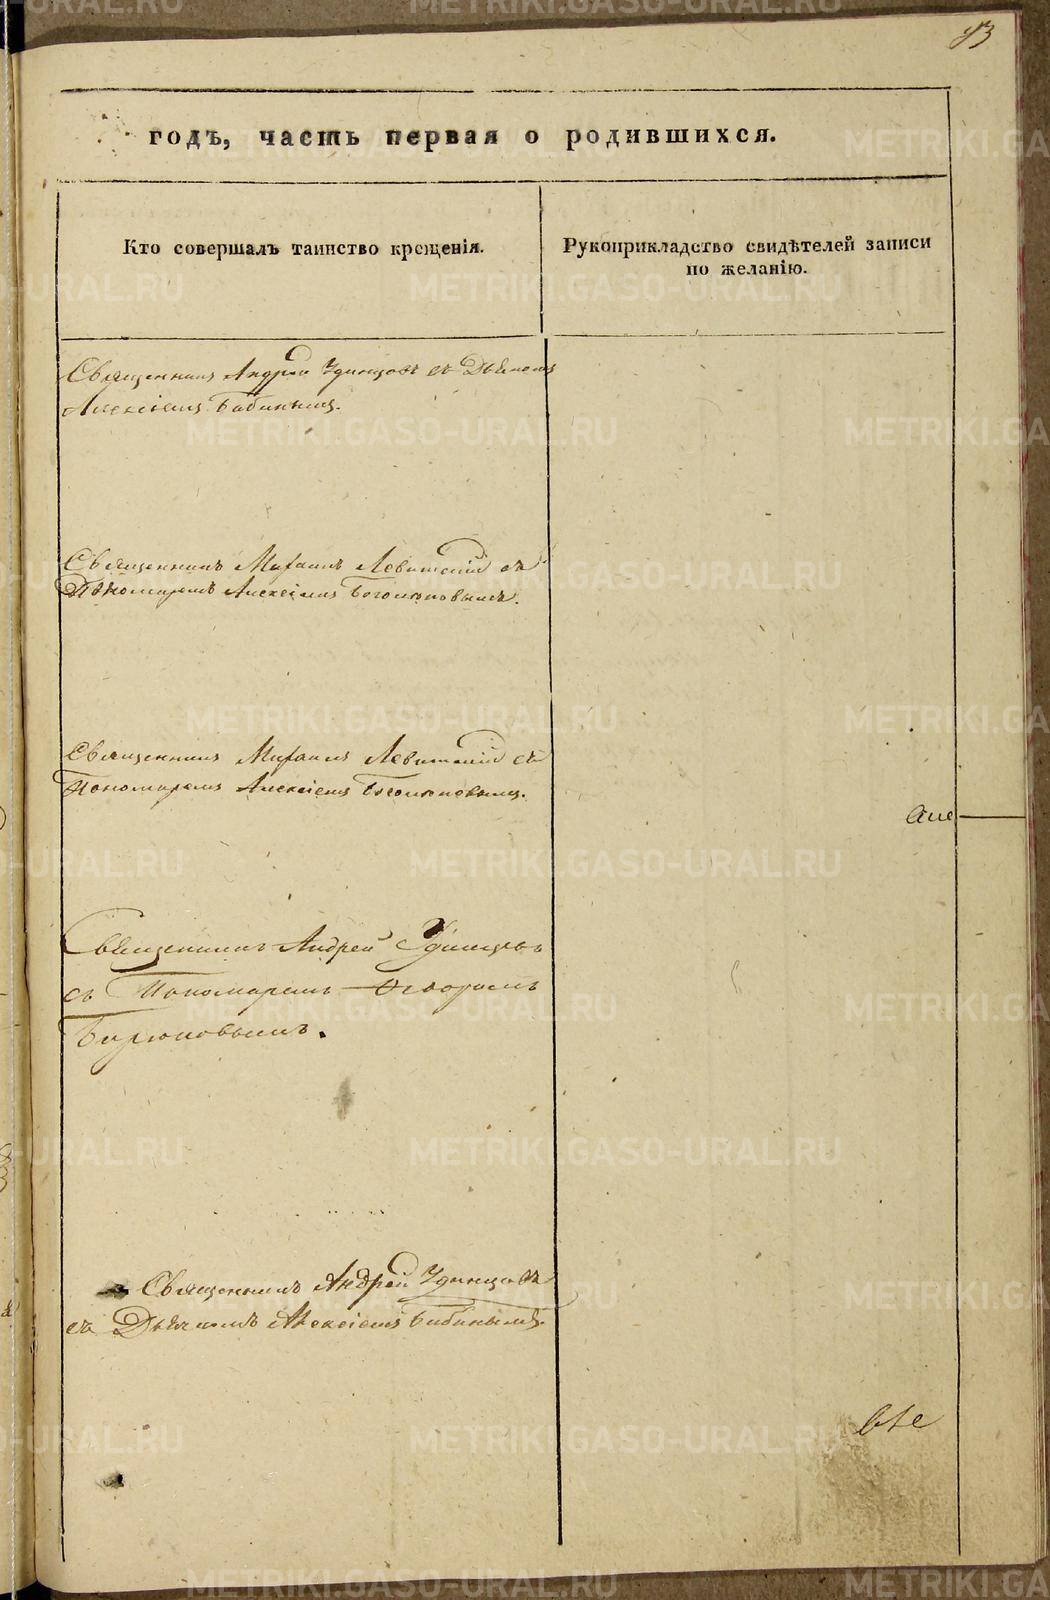 годъ, часть первая о родившихся.
Кто совершалъ таинство крещенія.
Рукоприкладство свидѣтелей записи
по желанію.
Священникъ Андрей Удинцовъ съ Дьячкомъ
Алексіемъ Бабинымъ.
Священникъ Михаилъ Левитскій съ
Пономаремъ Алексіемъ
Священникъ Михаилъ Левитскій съ
Пономаремъ Алексіемъ
Священникъ Андрей Удинцовъ
съ Пономаремъ Ѳеодоромъ
Бирюковымъ.
Священникъ Андрей Удинцовъ
съ Дьячкомъ Алексіемъ Бабинымъ.
METRIKI.GASO-URAL.RU